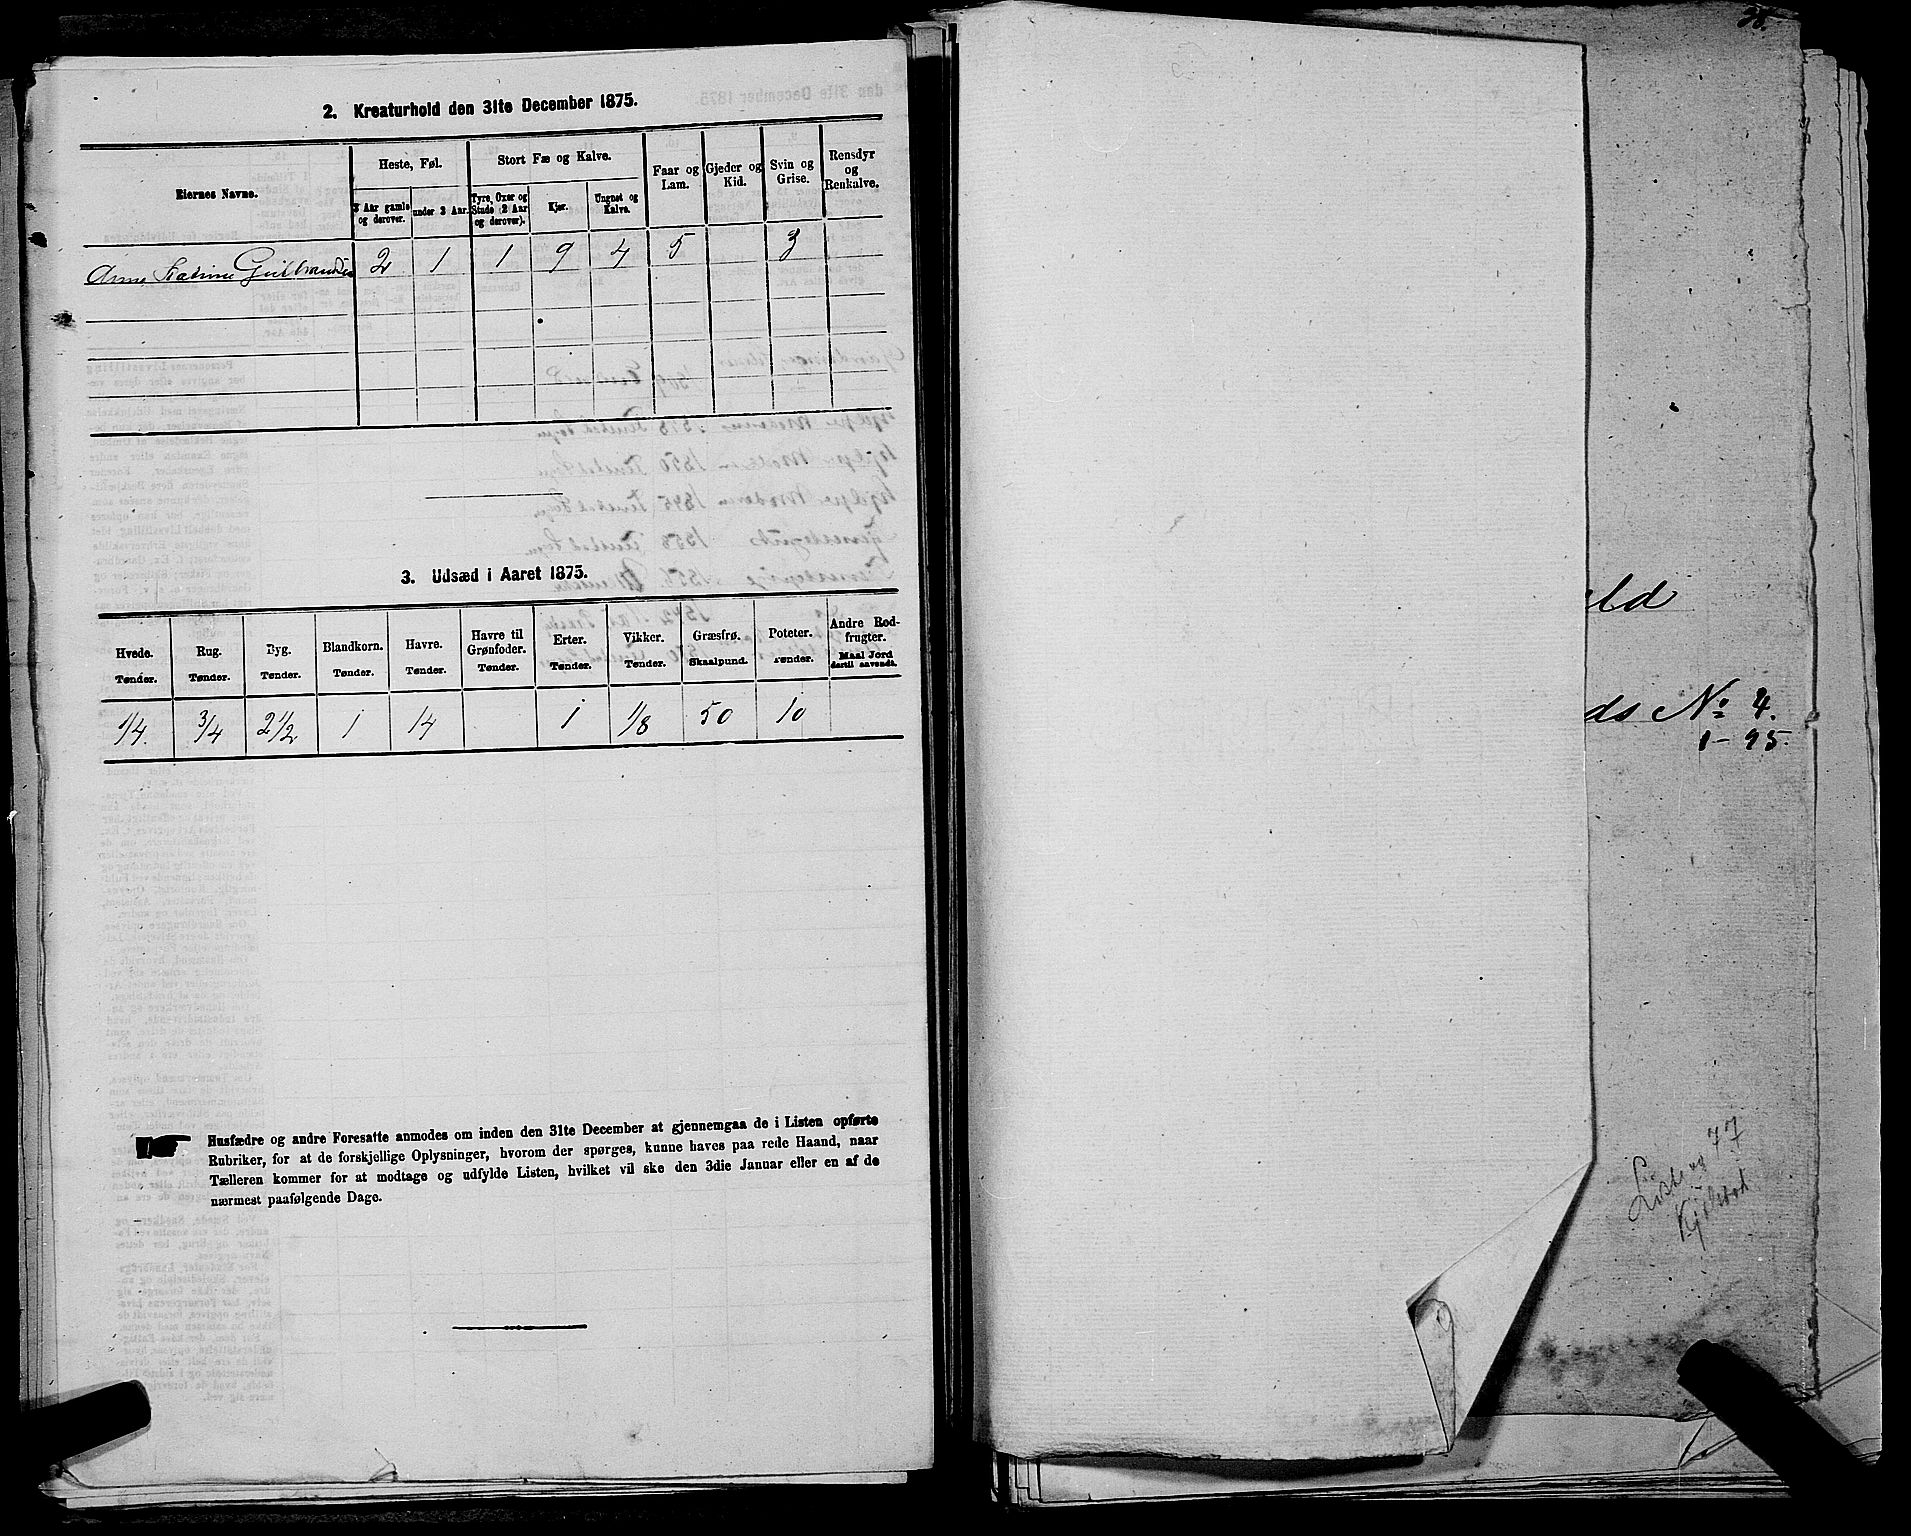 2. Kreaturhold den 31te December 1875.
Eiernes Navne.
Heste, Føl.
Stort Fæ og Kalve.
Faar og Lam.
Gjeder og Kid.
Svin og Grise.
Rensdyr og Renkalve.
3 Aar gamle og derover.
under 3 Aar.
Tyre, Oxer og Stude (2 Aar og derover).
Kjør.
Ungnøt og Kalve.
Anne Katrine 2 1 1 9 4 5 3
3. Udsæd i Aaret 1875.
Hvede. Rug. Byg. Blandkorn. Havre. Havre til Grønfoder. Erter. Vikker. Græsfrø. Poteter. Andre Rodfrugter.
Tønder. Tønder. Tønder. Tønder. Tønder. Tønder. Tønder. Tønder. Skaalpund. Tønder. Maal Jord dertil anvendt.
1/4. 3/4 2 1/2 1 14 1 1/8 50 10
Husfædre og andre Foresatte anmodes om inden den 31te December at gjennemgaa de i Listen opførte
Rubriker, for at de forskjellige Oplysninger, hvorom der spørges, kunne haves paa rede Haand, naar
Tælleren kommer for at modtage og udfylde Listen, hvilket vil ske den 3die Januar eller en af de
nærmest paafølgende Dage.
ld
ds No 4.
1-95.
77